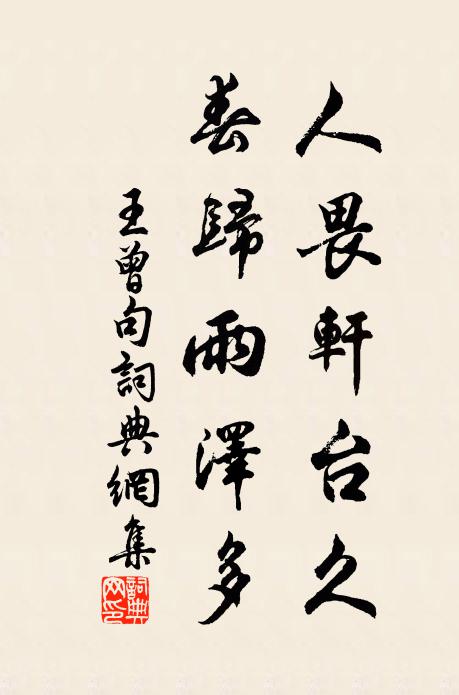 人畏軒台久
春歸雨澤多
王曾句詞典網集
詞典网印